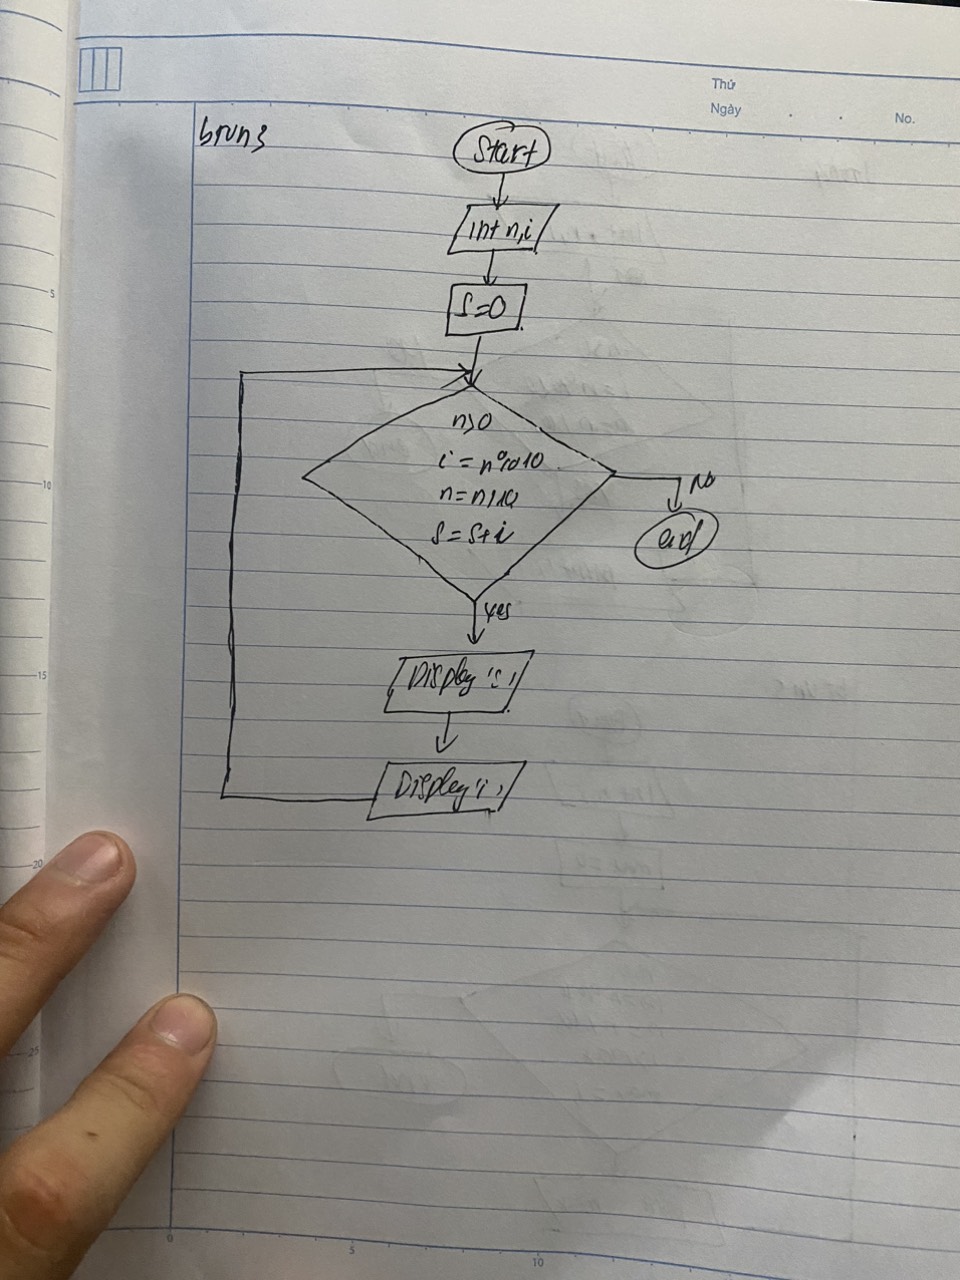 Thứ
Ngày . . No.
brun3
Start
int n,i
S=0
n>0
i = n%10
n=n/10
S=S+i
No
end
yes
Display 's'
Display 'i'
5
10
15
20
25
0 5 10